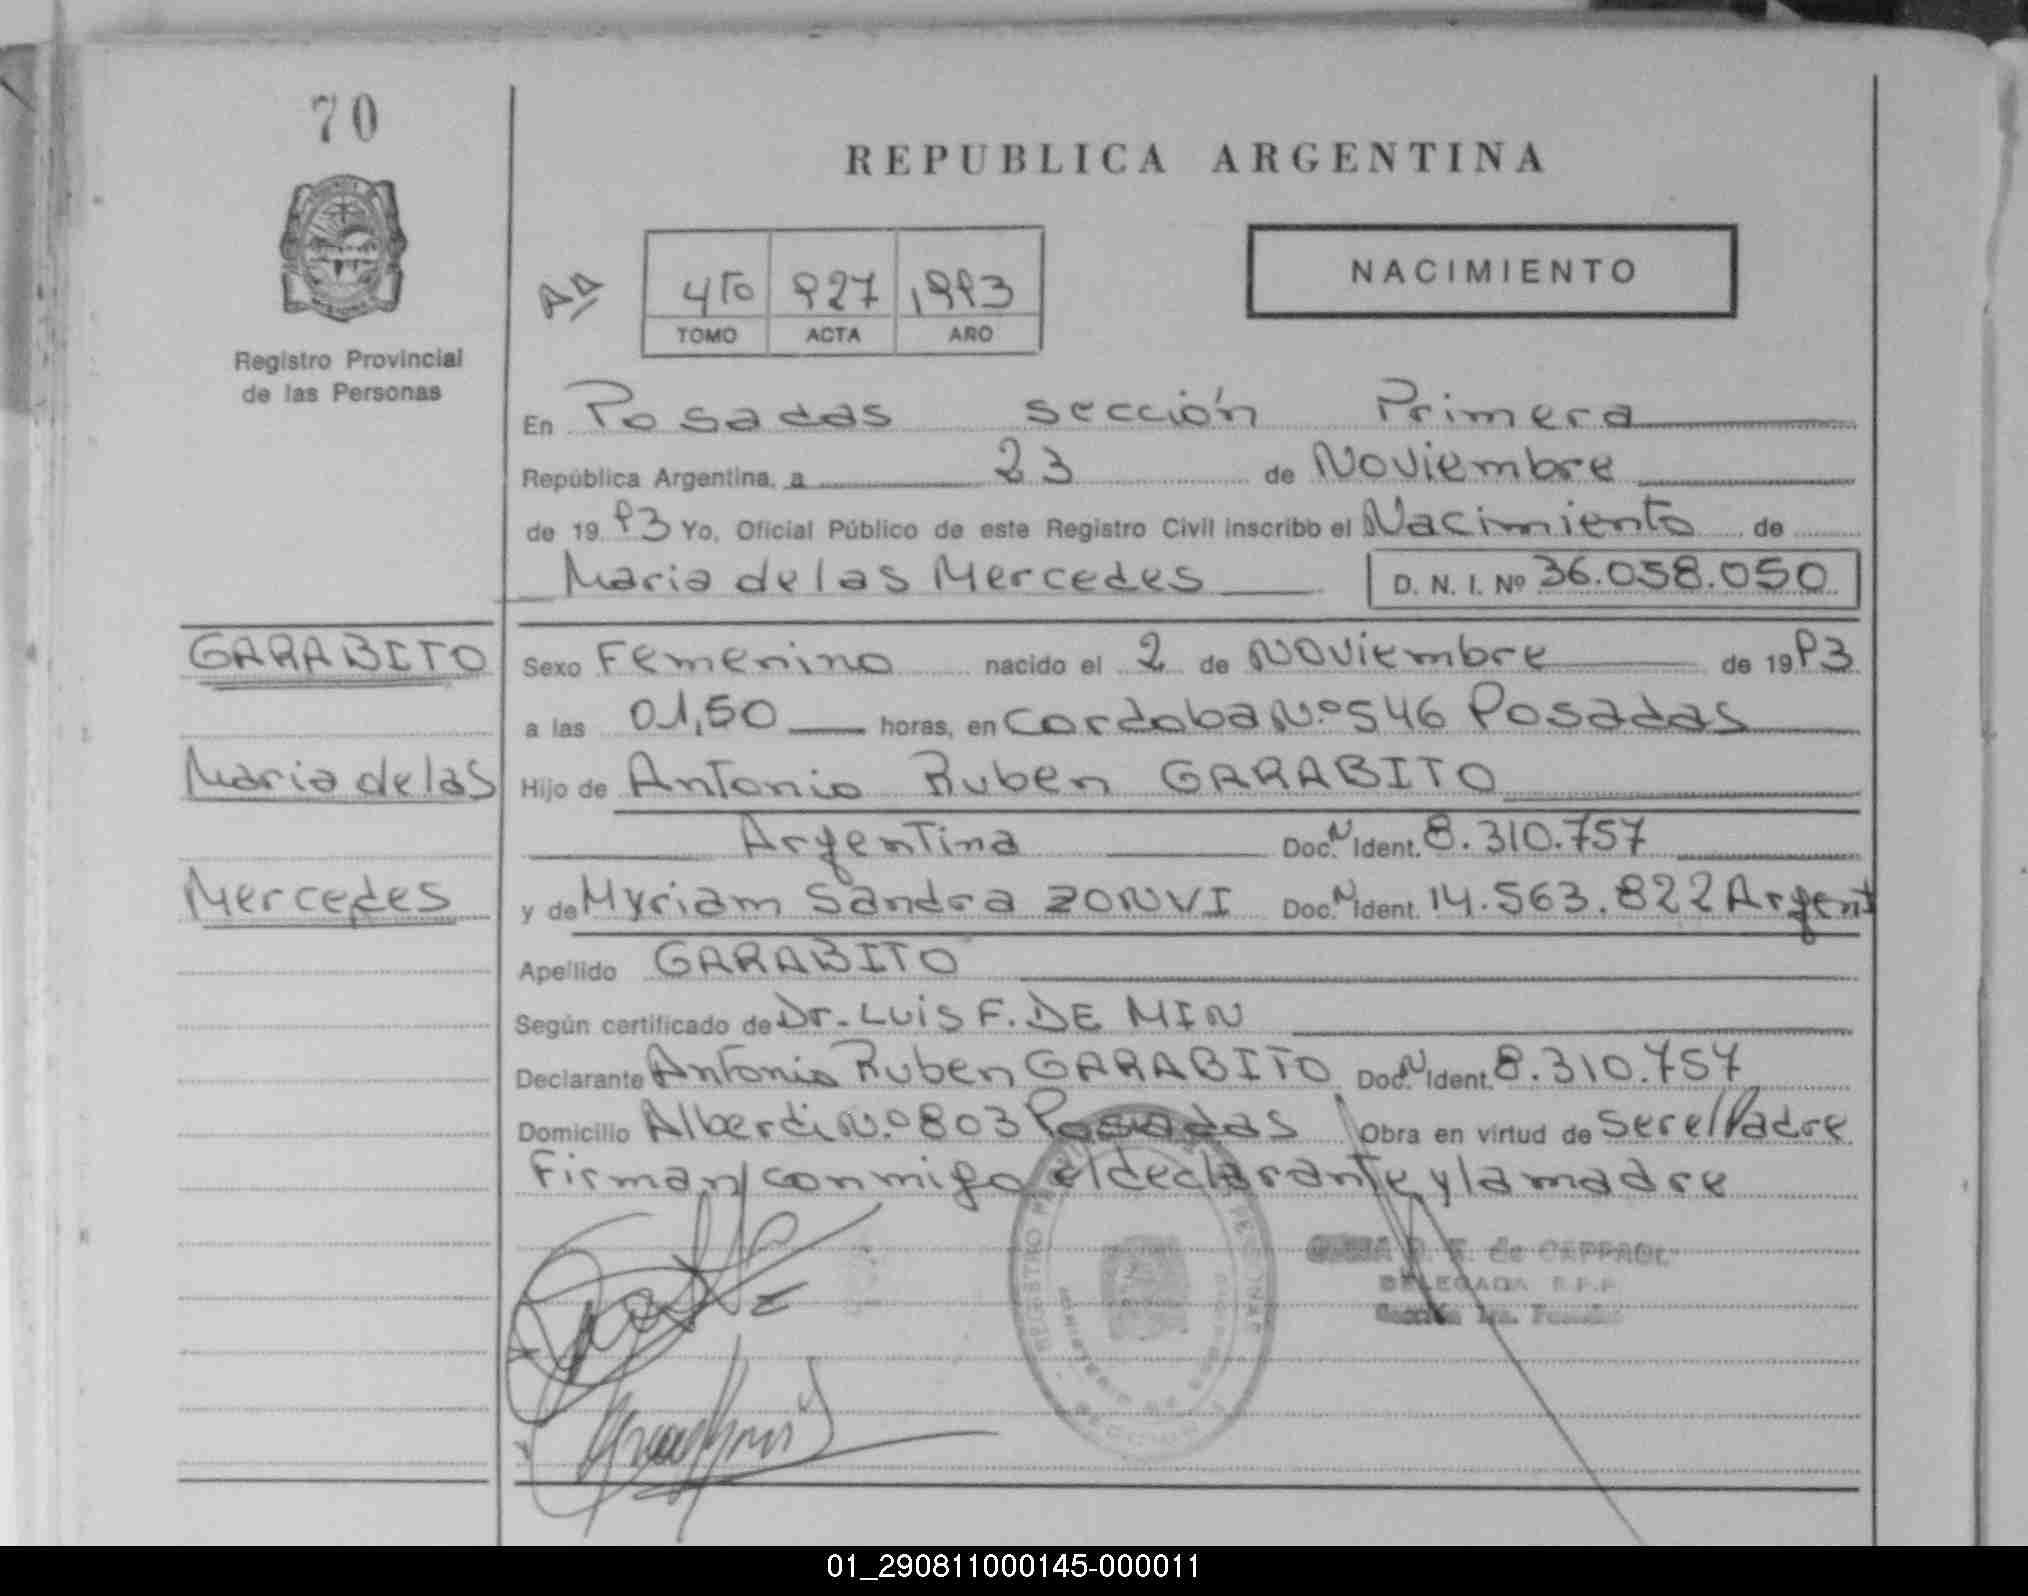 70
REPUBLICA ARGENTINA
NACIMIENTO
4to 927 1993
TOMO ACTA AÑO
Registro Provincial
de las Personas
En Posadas sección Primera
República Argentina, a 23 de Noviembre
de 19 93 Yo, Oficial Público de este Registro Civil inscribo el Nacimiento de
Maria de las Mercedes D. N. I. Nº 36.058.050
GARABITO
Sexo Femenino nacido el 2 de Noviembre de 19 93
a las 01,50 horas, en Cordoba N.º 546 Posadas
Maria de las
Hijo de Antonio Ruben GARABITO
Argentina Doc. N Ident. 8.310.757
Mercedes
y de Myriam Sandra ZONVI Doc. N Ident. 14.563.822 Argent
Apellido GARABITO
Según certificado de Dr. Luis F. DE MIN
Declarante Antonio Ruben GARABITO Doc. N Ident. 8.310.757
Domicilio Alberdi N.º 803 Posadas Obra en virtud de ser el Padre
Firman conmigo el declarante y la madre
DELEGADA R.P.P.
01_290811000145-000011